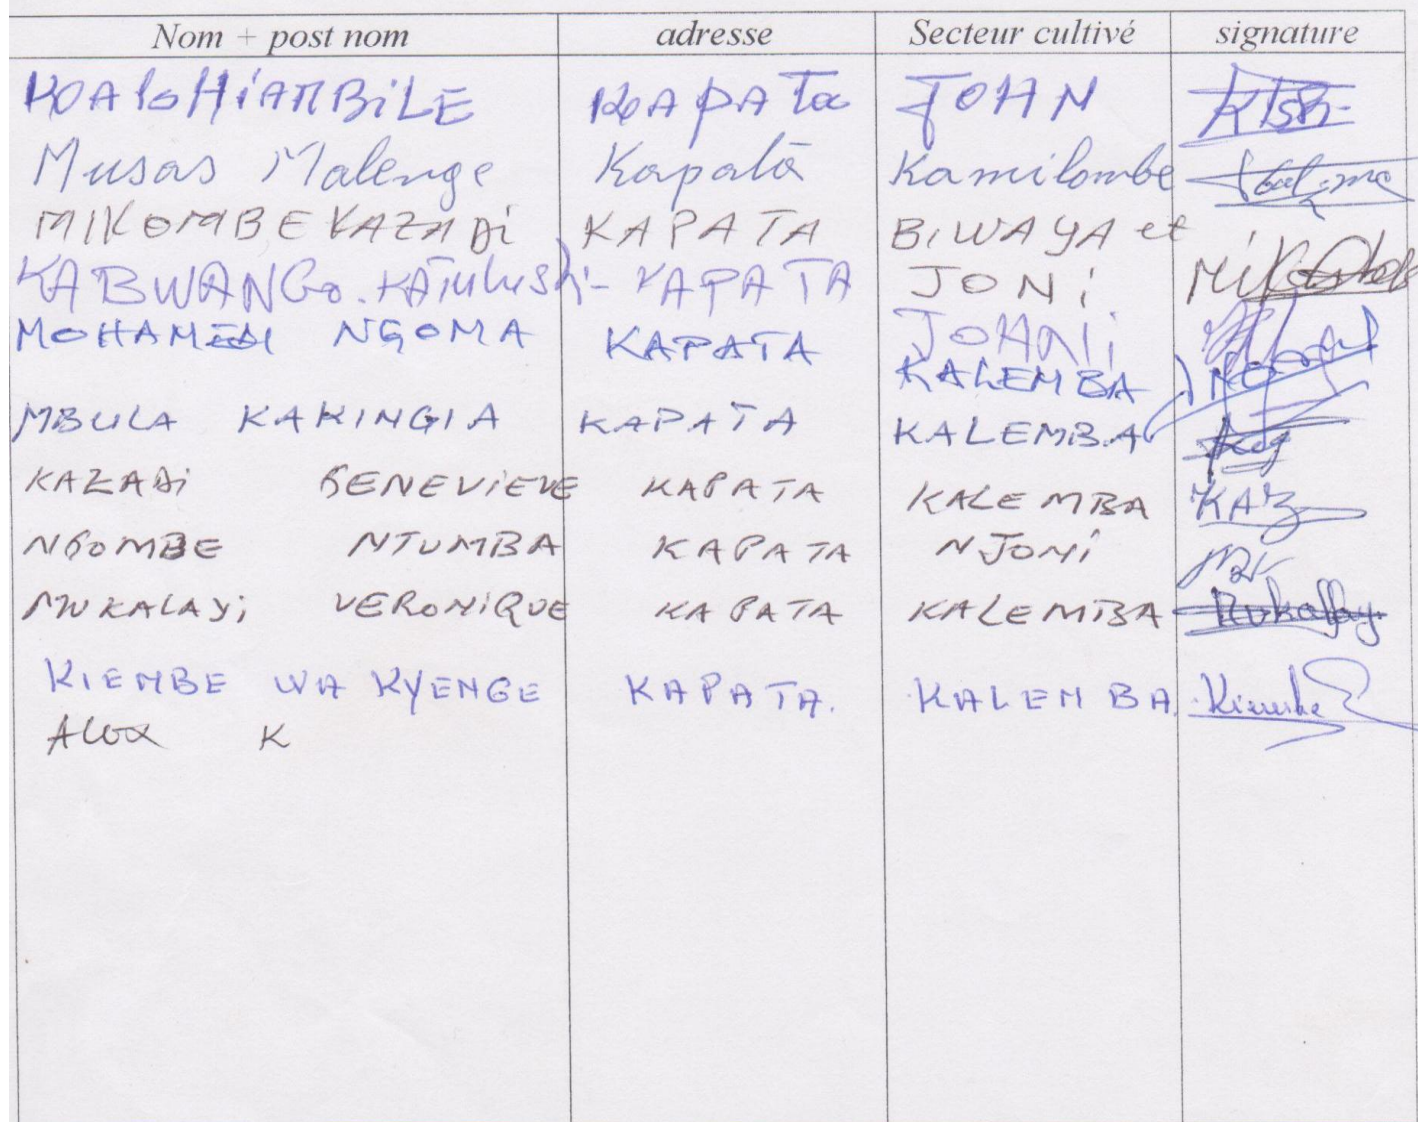 Nom + post nom adresse Secteur cultivé signature
KAPATA JOHN
Musas Malenge Kapata Kamilombe
MIKOMBE KAZADi KAPATA BiWAYA et
KABWANGo. KATuluShi - KAPATA JONi
MOHAMEDI NGOMA KAPATA JOHNi
KALEMBA
MBULA KAKINGIA KAPATA KALEMBA
KAZADi GENEViEVE KAPATA KALEMBA KAZ
NGOMBE NTUMBA KAPATA NJONi
MUKALAYi VERONiQUE KAPATA KALEMBA Mukalay.
KIEMBE WA KYENGE KAPATA. KALEMBA. Kiembe
Alex K